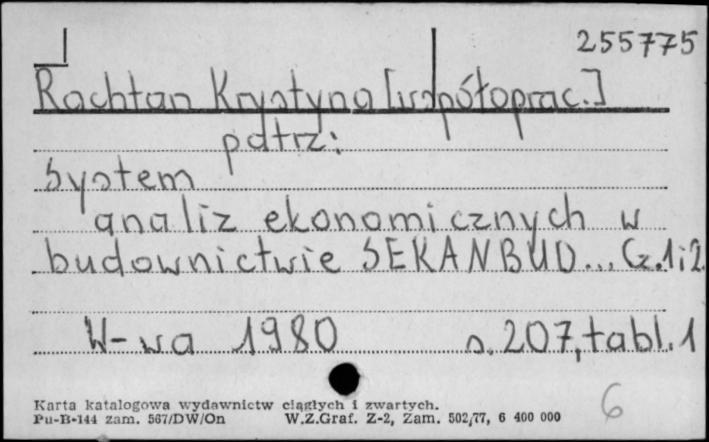 255775
Rachtan Krystyna [współoprac.]
patrz:
System
analiz ekonomicznych w
budownictwie SEKANBUD... Cz.1i2.
W-wa 1980 s. 207, tabl. 1
Karta katalogowa wydawnictw ciągłych i zwartych.
Pu-B-144 zam. 567/DW/On W.Z.Graf. Z-2, Zam. 502/77, 6 400 000
6